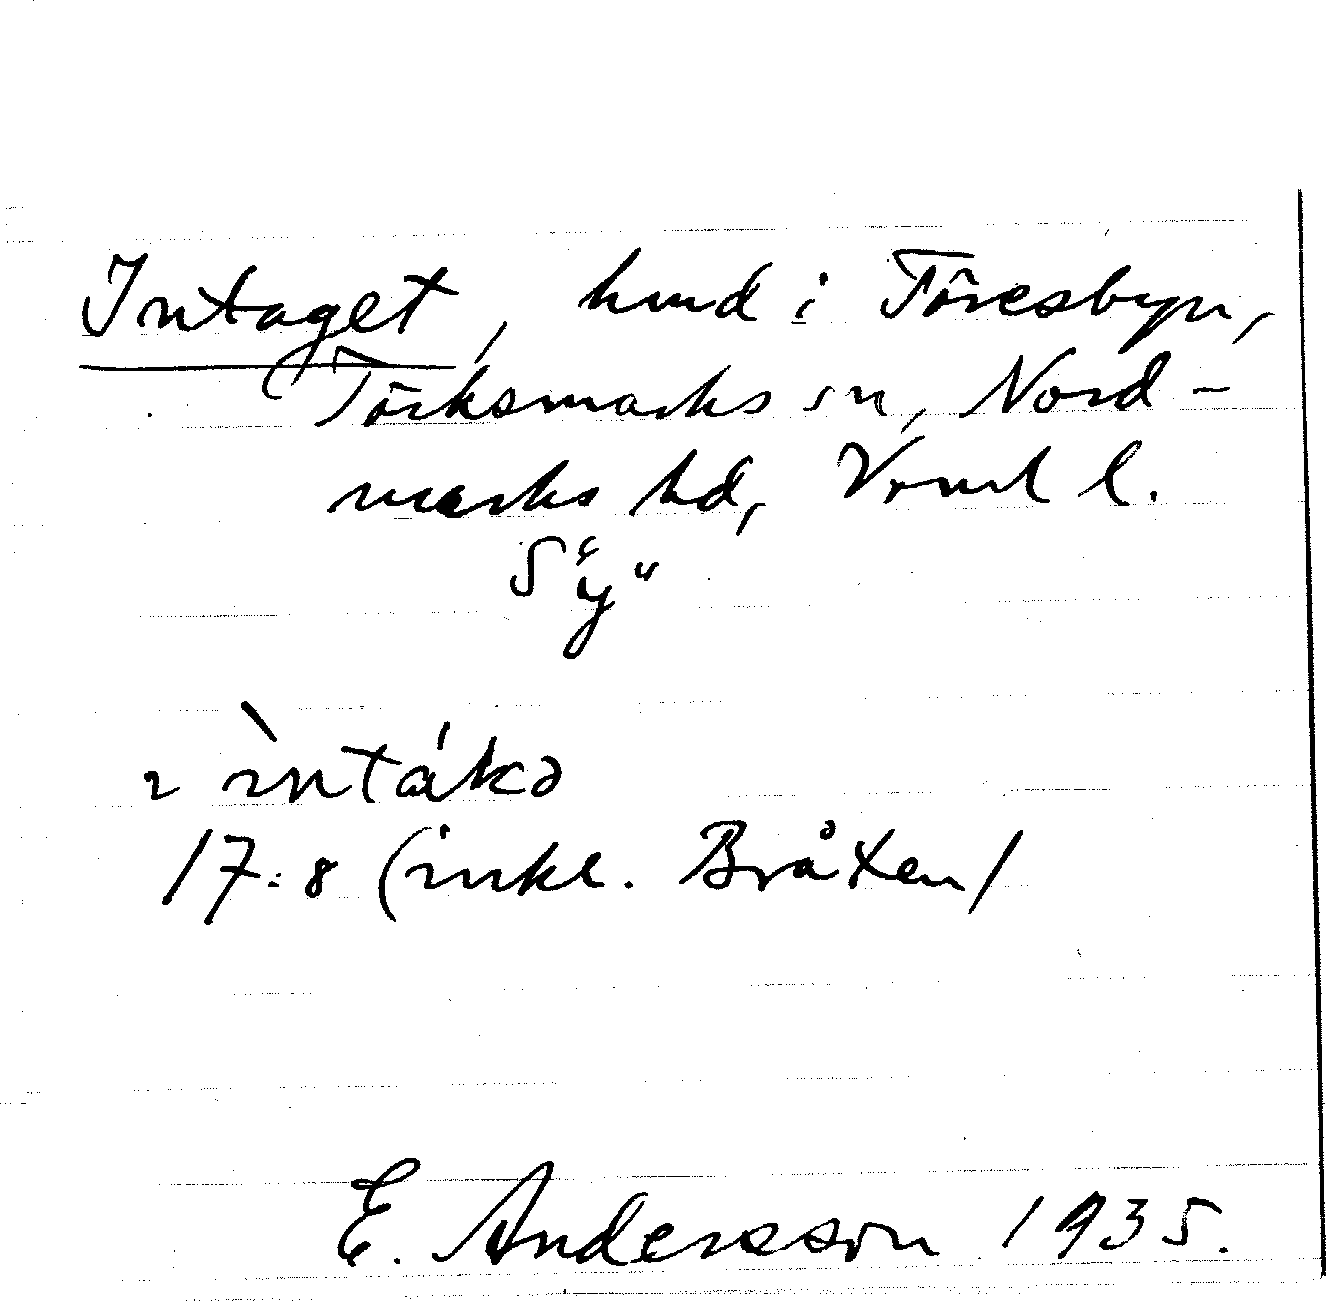 Intaget, hmd i Töresbyn,
Töcksmarks sn, Nord-
marks hd, Vrml l.
S "y"
ɩ ìntákə
17:8 (inkl. Bråten)
E. Andersson 1935.